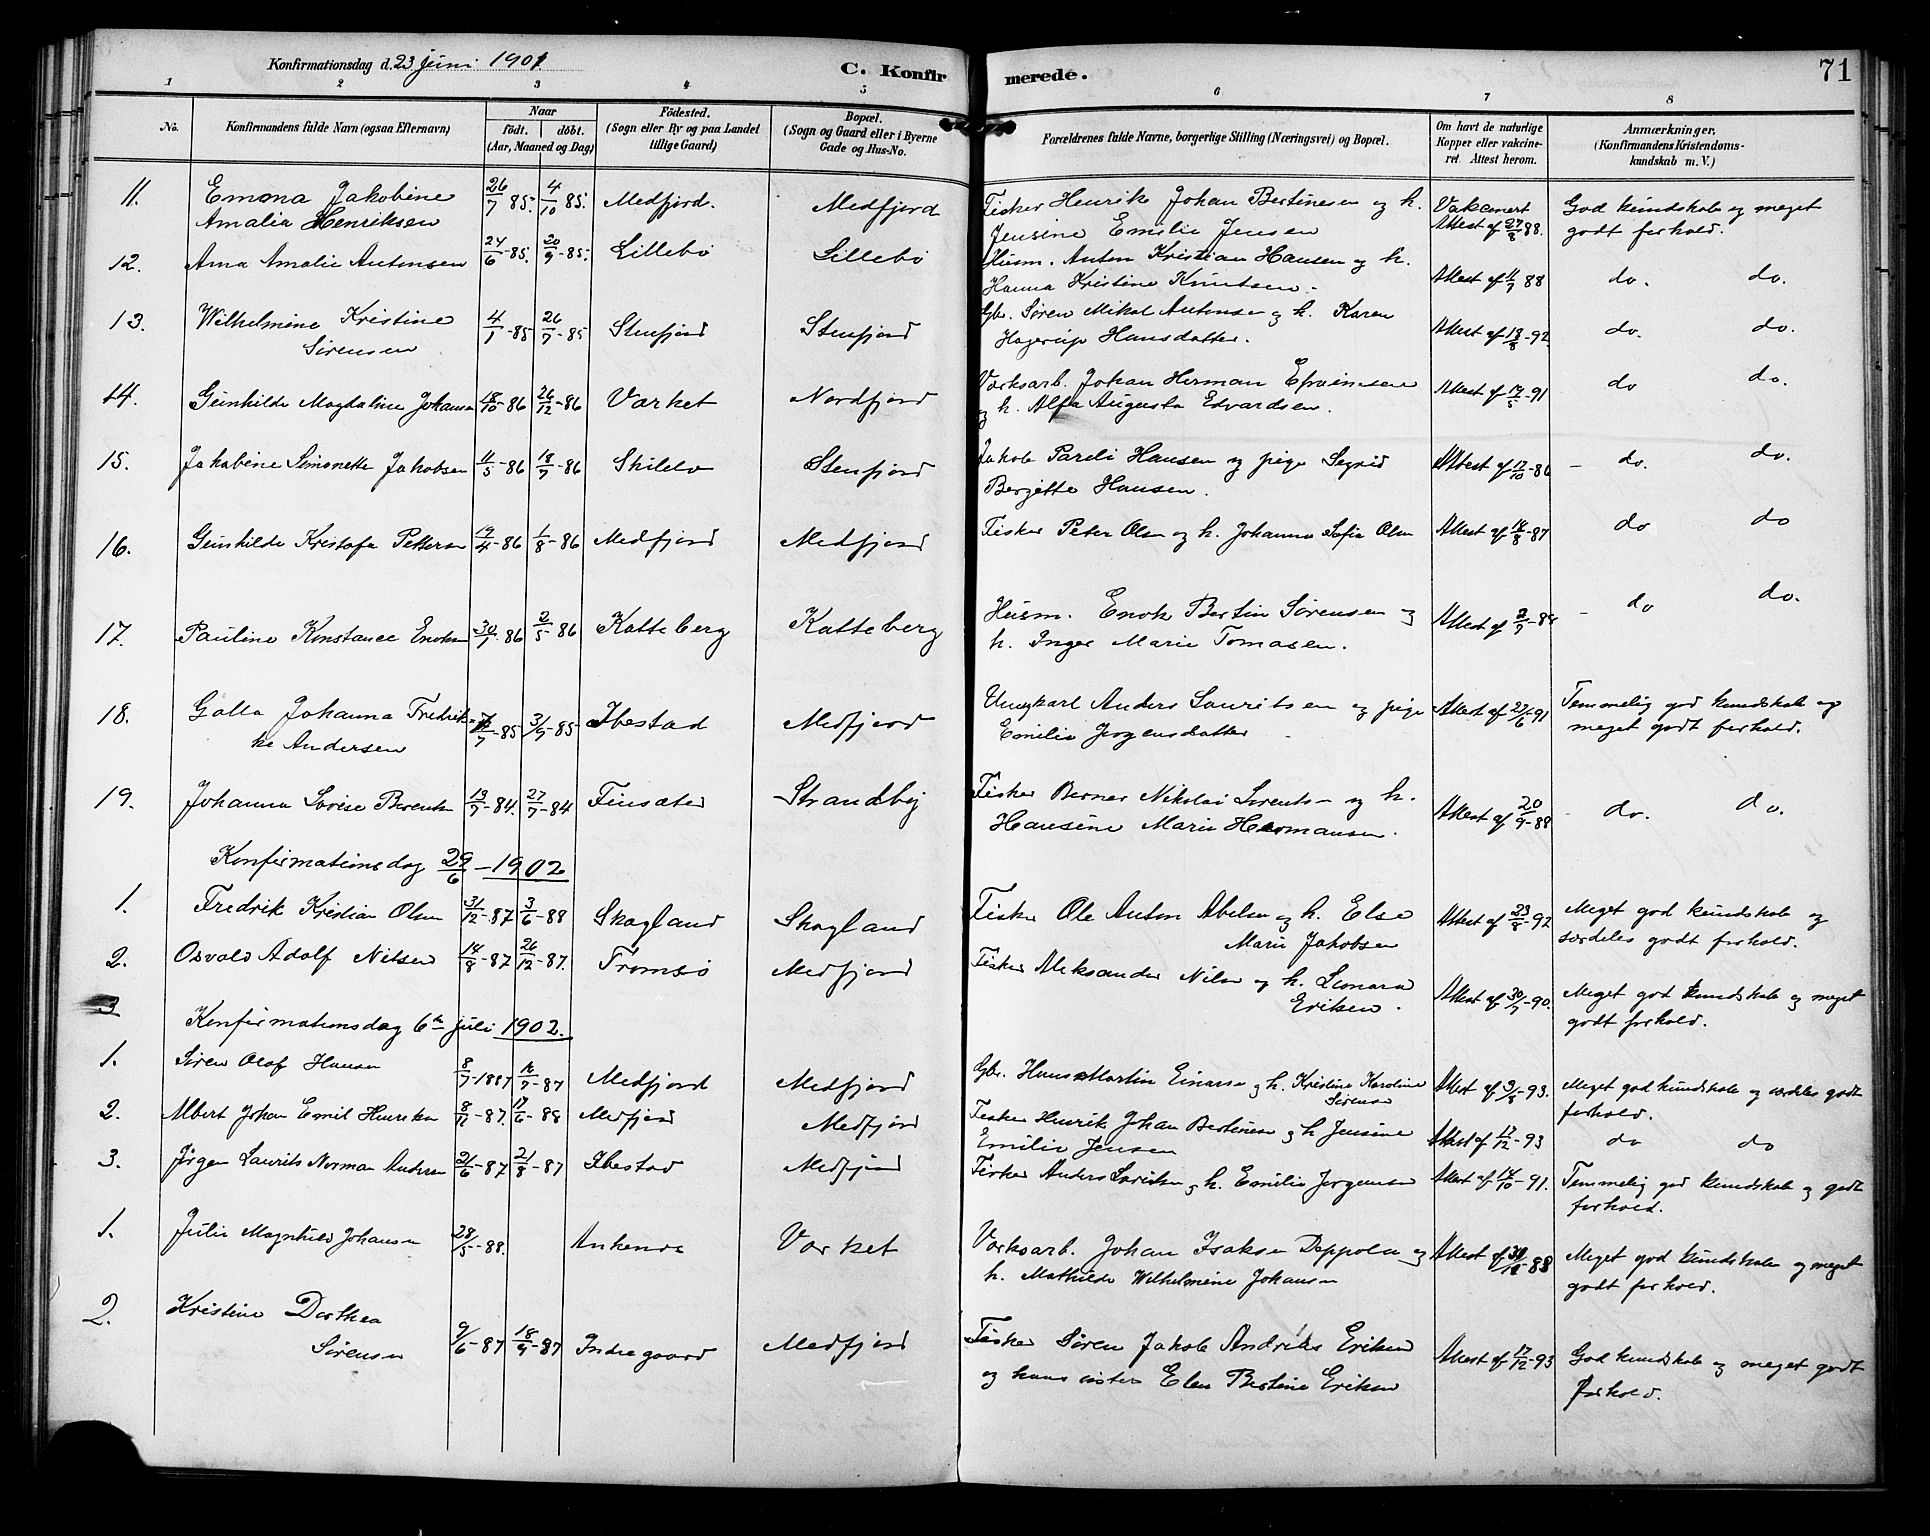 Konfirmationsdag d. 23 juni 1901.
C. Konfirmerede.
71
1 2 3 4 5 6 7 8
No.
Konfirmandens fulde Navn (ogsaa Efternavn)
Naar
födt. döbt.
(Aar, Maaned og Dag)
Födested.
(Sogn eller By og paa Landet
tillige Gaard)
Bopæl.
(Sogn og Gaard eller i Byerne
Gade og Hus-No.
Forældrenes fulde Navne, borgerlige Stilling (Næringsvei) og Bopæl.
Om havt de naturlige
Kopper eller vakcine-
ret. Attest herom.
Anmærkninger.
(Konfirmandens Kristendoms-
kundskab m. V.)
11. Emona Jakobine 26/7 85. 4/10 85. Medfjord. Medfjord Fisker Henrik Johan Bertinesen og h. Vakcinert God kundskab og meget
Amalia Henriksen Jensine Emilie Jensen Attest af 27/8 88. godt forhold.
12. Ana Amalie Antonsen 24/6 85. 20/9 85. Lillebo Lillebo Husm. Anton Kristian Hansen og h. Attest af 88 do. do.
Hanna Kristine Knutsen.
13. Wilhelmine Kristine 4/1-85 26/7-85 Stenfjord Stenfjord Gbr. Søren Mikal Antonse og h. Karen Attest af 18/8-92. do. do.
Sørensen Hagerup Hansdatter.
14. Gunhilde Magdaline Johansn 18/10-86 26/12-86 Varket Nordfjord Varksarb. Johan Herman Efraimsen Attest af 17/5-91 do do.
og h. Alfa Augusta Edvardsen.
15. Jakobine Simonette Jakobsen 11/5-86 18/7-86 Skilebo Stenfjord Jakob Pareli Hansen og pige Sigrid Attest af 17/10-86 - do. do.
Bergitte Hansen.
16. Gunhilde Kristofa Pettersn 19/4-86 1/8-86 Medfjord Medfjord Fisker Peter Olsn og h. Johanna Sofia Olsn Attest af 14/8-87 do do
17. Pauline Konstance Enoksn 30/ -86 2/5-86 Katteberg Katteberg Husm. Enok Bertin Sørensen og Attest af - do do.
h. Inger Marie Tomasen.
18. Galla Johanna Fredrik- 85 3/7-85 Ibestad Medfjord Ungkarl Anders Lauritsen og pige Attest af 22/6-91 Temmelig god kundskab og
ke Andersen Emilie Jørgensdatter meget godt forhold.
19. Johanna Lovise Berents 13/7-84. 27/7-84 Finsæter Strandbej Fisker Berner Nikolai Lorents- og h. Attest af 20/9-88 - do. do.
Hansine Marie Hermansen.
Konfirmationsdag 29/6-1902
1. Fredrik Kristian Olsen 31/12-87 3/6-88 Skagland Skagland Fisker Ole Anton Abelsn og h. Else Attest af 23/8-92 Meget god kundskab og
Marie Jakobsen særdeles godt forhold.
2. Osvald Adolf Nilsen 14/8-87 26/12-87. Tromsø Medfjord Fisker Aleksander Nilsn og h. Lenora Attest af 30/7-90. Meget god kundskab og meget
Eriksen. godt forhold.
3
Konfirmationsdag 6te juli 1902.
1. Søren Olaf Hansen 8/7-1887 /7-87 Medfjord Medfjord Gbr. Hans Martin Einarsn og h. Kristine Karoline Attest af 3/8-93. Meget god kundskab og særdeles godt
Sørensn forhold.
2. Albert Johan Emil Henriksn 8/ -87. 17/6-88 Medfjord Medfjord Fisker Henrik Johan Bertinesn og h Jensine Attest af 17/12-93 do do
Emilie Jensen
3. Jørgen Laurits Norman Andersen 21/6-87 21/8-87 Ibestad Medfjord Fisker Anders Lauritsen og h. Emilie Jørgensen Attest af 14/10-91. Temmelig god kundskab og godt
forhold.
1. Julie Magnhild Johansen 28/5-88. Ankenes Varket Varksarb. Johan Isaksn og Attest af -88 Meget god kundskab og meget
h. Mathilde Wilhelmine Johansn godt forhold.
2. Kristine Dorthea
Sørensen 9/6-87 18/9-87 Indregaard Medfjord Fisker Søren Jakob Andreas Eriksen Attest af 17/12-93 God kundskab og meget godt
og hans søster Elen Bertine Eriksen forhold.